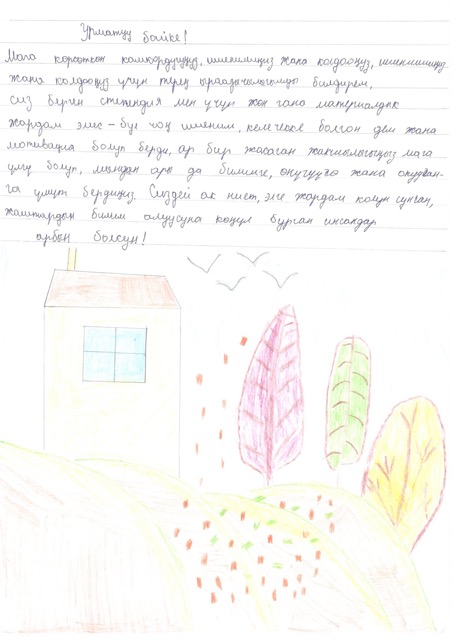 Урматтуу байке!
Мага көрсөткөн камкордугуңуз, ишенимиңиз жана колдооңуз, ишенимиңиз
жана колдооңуз үчүн терең ыраазычылыгымды билдирем,
сиз берген стипендия мен үчүн жөн гана материалдык
жардам эмес – бул чоң ишеним, келечекке болгон дем жана
мотивация болуп берди, ар бир жасаган жакшылыгыңыз мага
үлгү болуп, мындан ары да билимге, өнүгүүгө жана окууган-
га үмүт бердиңиз. Сиздей ак ниет, элге жардам колун сунган,
жаштардын билим алуусуна көңүл бурган инсандар
арбын болсун!